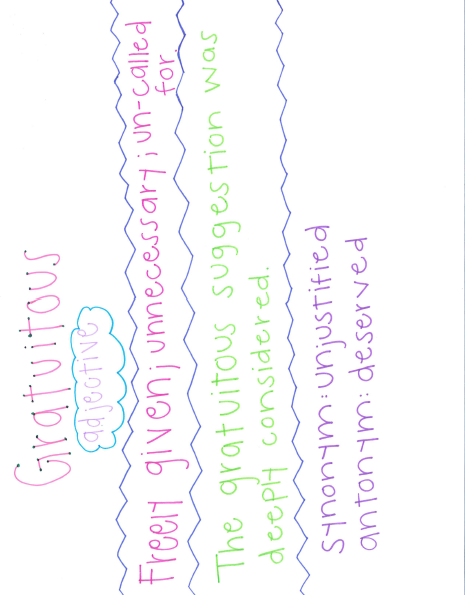 Gratuitous
adjective
Freely given; unnecessary; un-called
for.
The gratuitous suggestion was
deeply considered.
synonym: unjustified
antonym: deserved